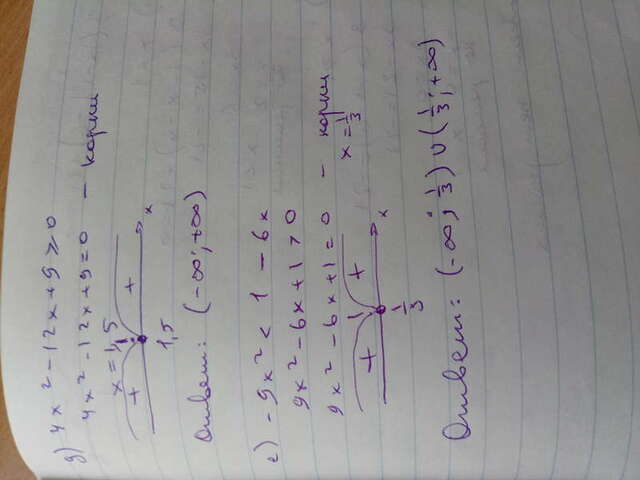 д) 4x² - 12x + 9 ≥ 0
4x² - 12x + 9 = 0 — корни
x = 1,5
+ + x
1,5
Ответ: (-∞; +∞)
е) -9x² < 1 - 6x
9x² - 6x + 1 > 0
9x² - 6x + 1 = 0 — корни
x = 1/3
+ + x
1/3
Ответ: (-∞; 1/3) ∪ (1/3; +∞)